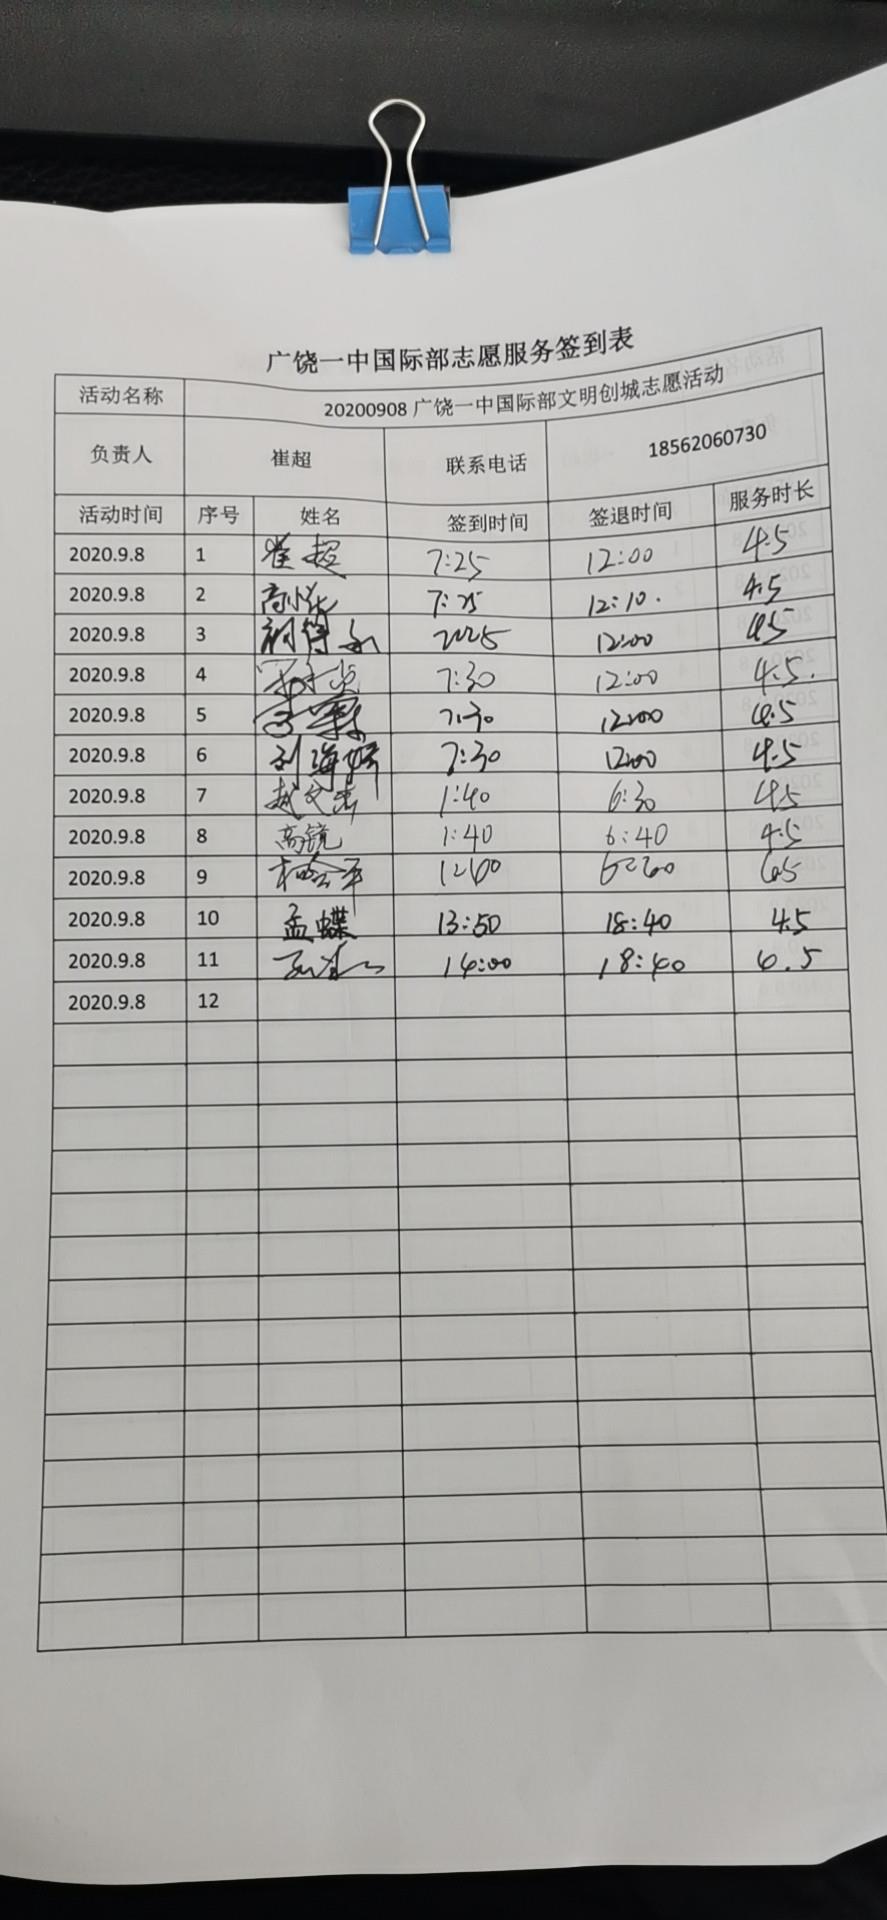 广饶一中国际部志愿服务签到表
活动名称 20200908 广饶一中国际部文明创城志愿活动
负责人 崔超 联系电话 18562060730
活动时间 序号 姓名 签到时间 签退时间 服务时长
2020.9.8 1 崔超 7:25 12:00 4.5
2020.9.8 2 7:25 12:10. 4.5
2020.9.8 3 12:00 4.5
2020.9.8 4 7:30 12:00 4.5.
2020.9.8 5 7:30 12:00 4.5
2020.9.8 6 刘海婷 7:30 12:00 4.5
2020.9.8 7 1:40 6:30 4.5
2020.9.8 8 高镜 1:40 6:40 4.5
2020.9.8 9
2020.9.8 10 孟蝶 13:50 18:40 4.5
2020.9.8 11 14:00 18:40
2020.9.8 12